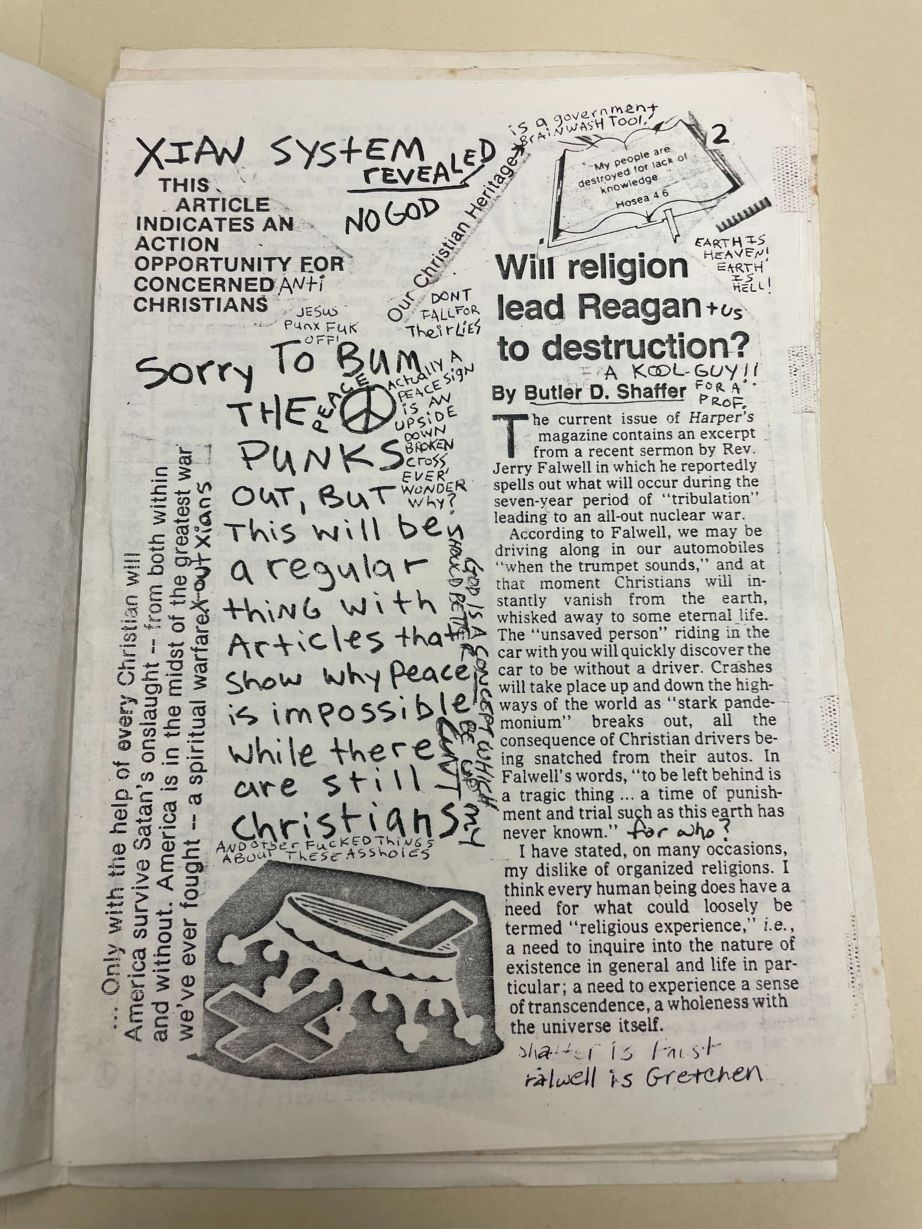 XIAN SYSTEM
REVEALED
NO GOD
THIS
ARTICLE
INDICATES AN
ACTION
OPPORTUNITY FOR
CONCERNED ANTi
CHRISTIANS
JESUS
PUNX FUK
OFF!
is a government
BRAINWASH TOOL!
Our Christian Heritage
2
"My people are
destroyed for lack of
knowledge
Hosea 4 6
EARTH IS
HEAVEN!
EARTH
IS
HELL!
DONT
FALL FOR
Their LIES
Sorry To BUM
THE PEACE
PUNKS
OUT, BUT
This will be
a regular
thING with
Articles that
show why peace
is impossible
while there
are still
christians
AND other FUCKED THINGS
ABOUT THESE ASSHOLES
ACtUAlly A
PEACE SIGN
IS AN
UPSIDE
DOWN
BROKEN
CROSS
EVER
WONDER
Why?
GOD IS A CONCEPT WHICH
SHOULD BE
... Only with the help of every Christian will
America survive Satan's onslaught -- from both within
and without. America is in the midst of the greatest war
we've ever fought -- a spiritual warfare X-out Xians
Will religion
lead Reagan + us
to destruction?
A KOOL GUY!!
FOR A
PROF.
By Butler D. Shaffer
The current issue of Harper's
magazine contains an excerpt
from a recent sermon by Rev.
Jerry Falwell in which he reportedly
spells out what will occur during the
seven-year period of "tribulation"
leading to an all-out nuclear war.
According to Falwell, we may be
driving along in our automobiles
"when the trumpet sounds," and at
that moment Christians will in-
stantly vanish from the earth,
whisked away to some eternal life.
The "unsaved person" riding in the
car with you will quickly discover the
car to be without a driver. Crashes
will take place up and down the high-
ways of the world as "stark pande-
monium" breaks out, all the
consequence of Christian drivers be-
ing snatched from their autos. In
Falwell's words, "to be left behind is
a tragic thing ... a time of punish-
ment and trial such as this earth has
never known." for who?
I have stated, on many occasions,
my dislike of organized religions. I
think every human being does have a
need for what could loosely be
termed "religious experience," i.e.,
a need to inquire into the nature of
existence in general and life in par-
ticular; a need to experience a sense
of transcendence, a wholeness with
the universe itself.
Shaffer is Faust
Falwell is Gretchen